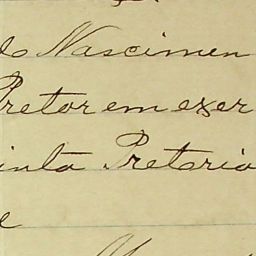 do Nascimen
Pretor em exer
inta Pretoria
e